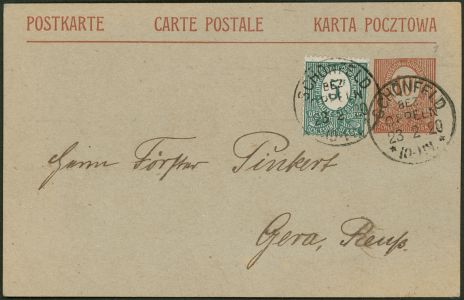 POSTKARTE CARTE POSTALE KARTA POCZTOWA
SCHÖNFELD
BEZ
OPPELN
23 2 20
SCHÖNFELD
BEZ
OPPELN
23 2 20
* 10-11V. *
Herrn Förster Pinkert
Gera, Reuß.